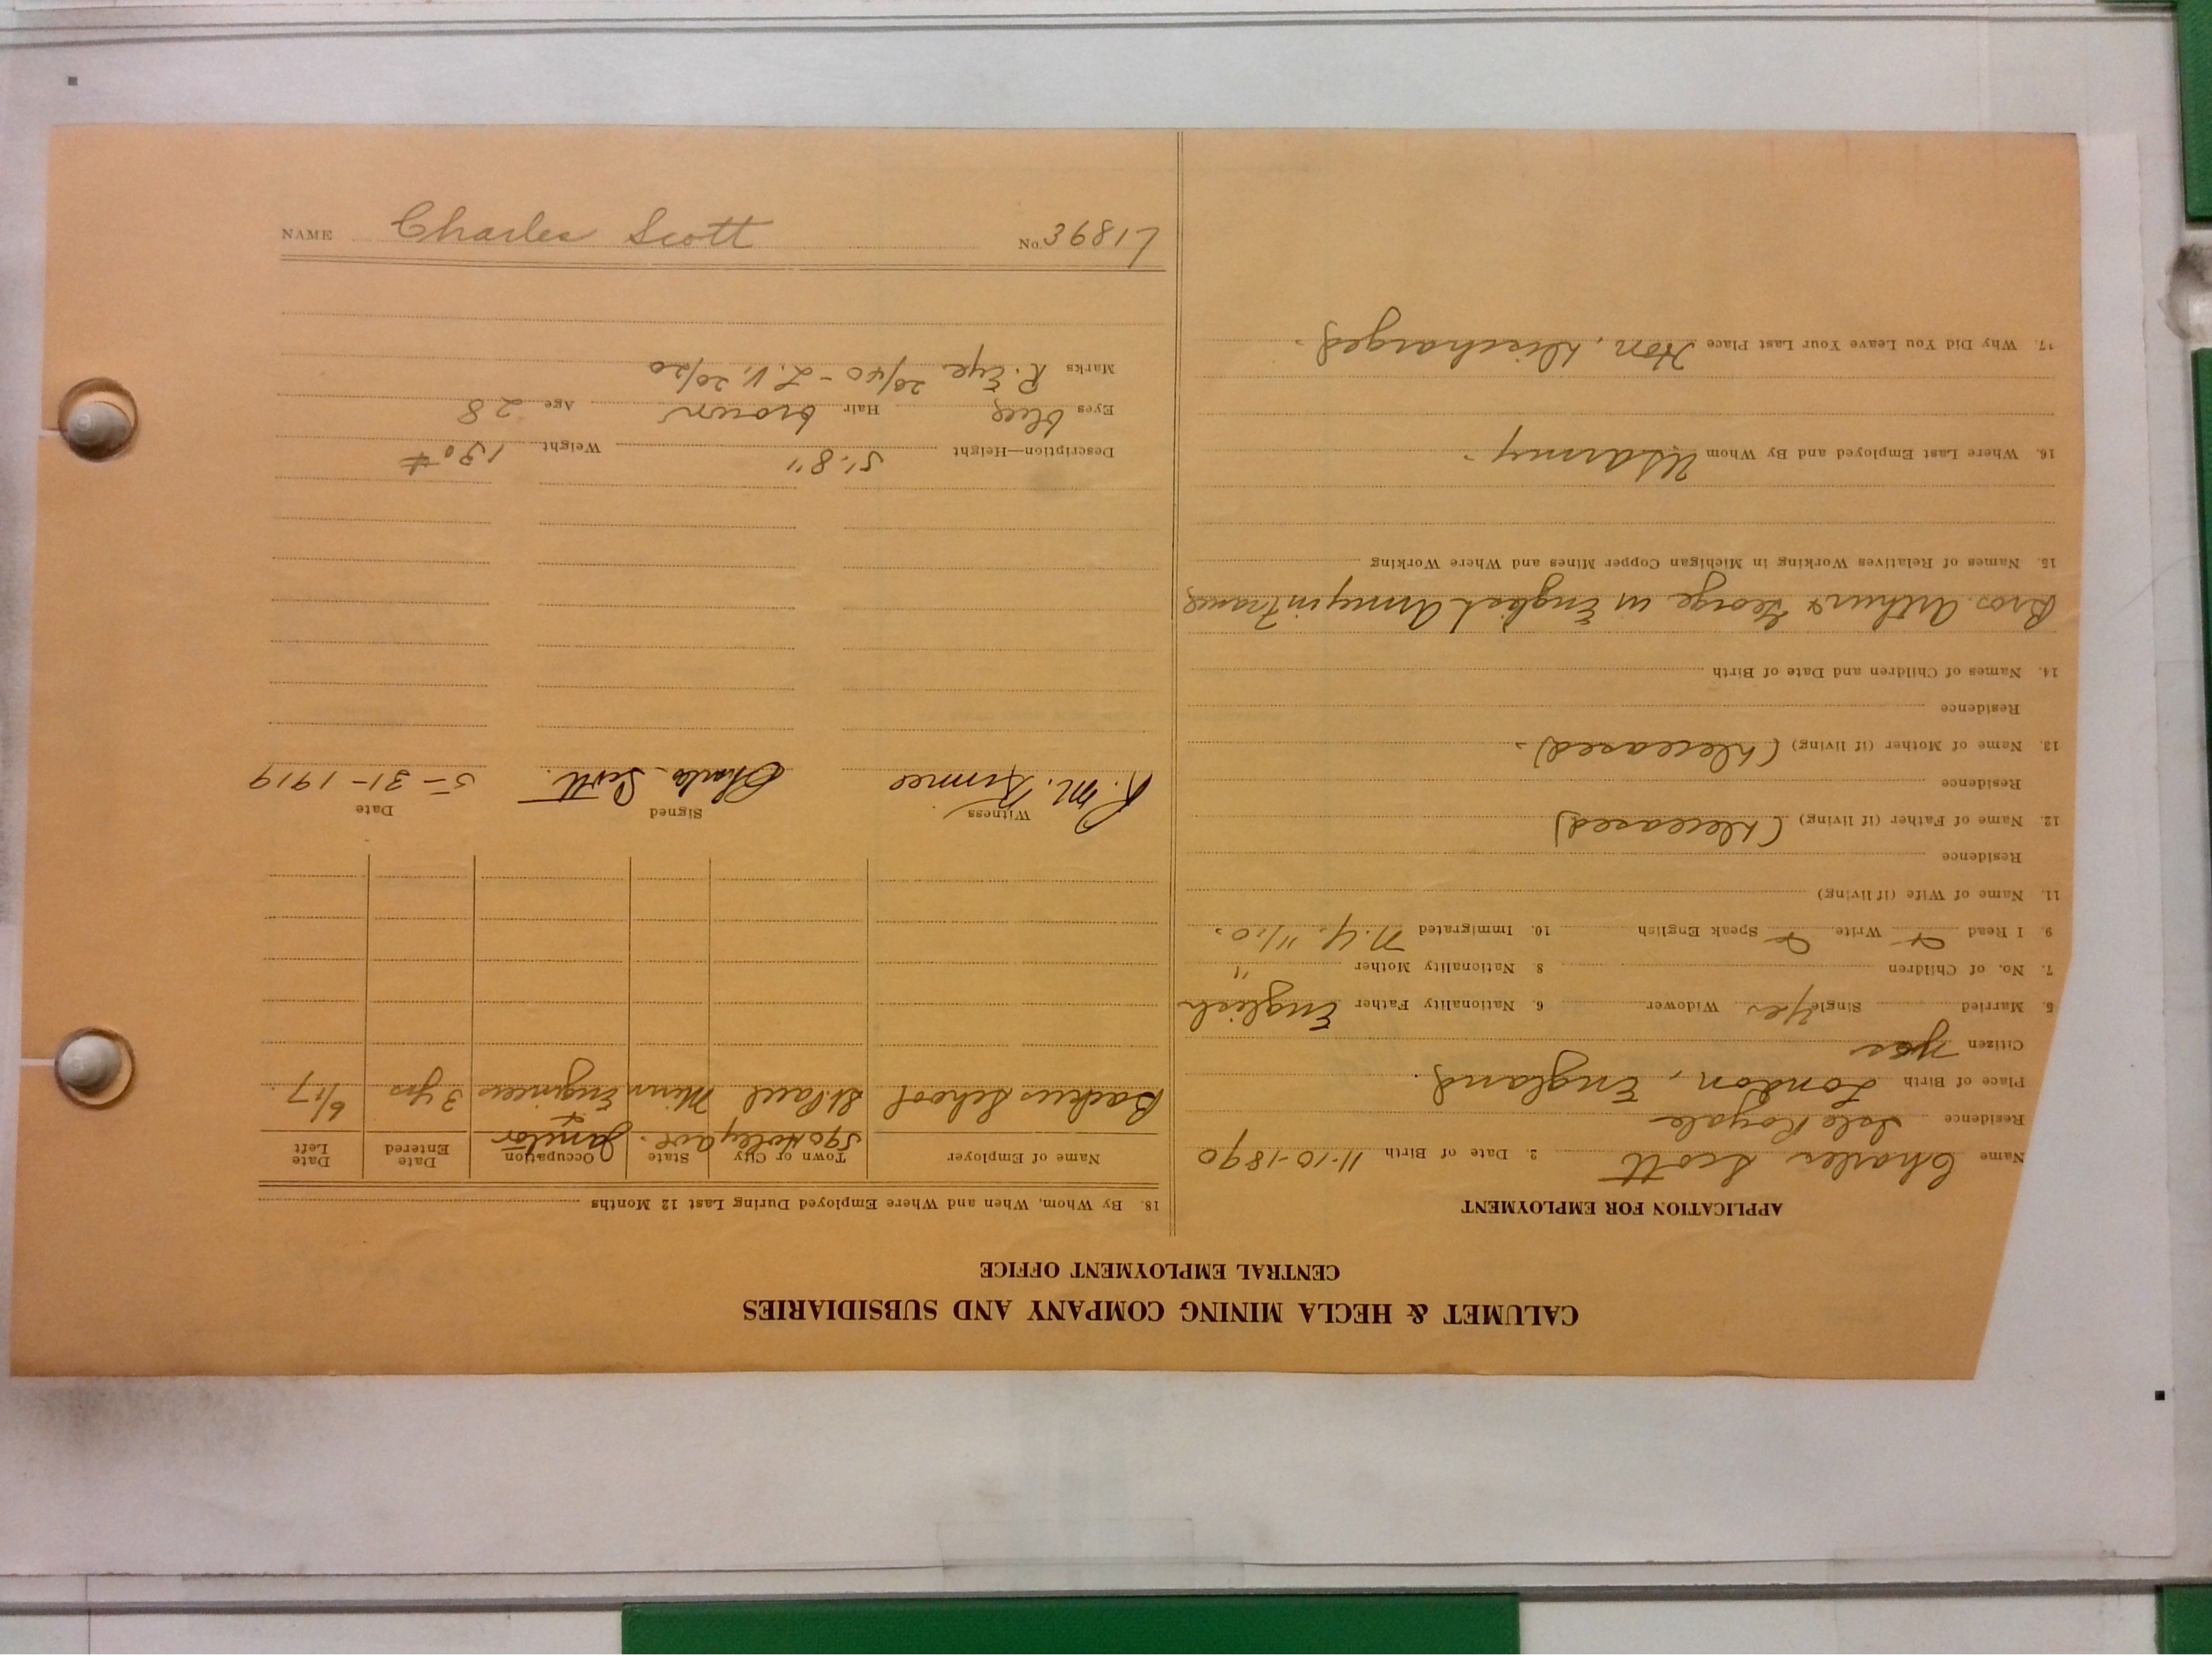 CALUMET & HECLA MINING COMPANY AND SUBSIDIARIES
CENTRAL EMPLOYMENT OFFICE
APPLICATION FOR EMPLOYMENT
Name Charles Scott 2. Date of Birth 11-10-1890
Residence Isle Royale
Place of Birth London, England.
Citizen yes
5. Married Single Yes Widower 6. Nationality Father English
7. No. of Children 8. Nationality Mother "
9. I Read Write Speak English 10. Immigrated N.Y. 11/10.
11. Name of Wife (if living)
Residence
12. Name of Father (if living) (Deceased)
Residence
13. Name of Mother (if living) (Deceased).
Residence
14. Names of Children and Date of Birth
Bros. Arthur & George in English Army in France
15. Names of Relatives Working in Michigan Copper Mines and Where Working
16. Where Last Employed and By Whom US Army.
17. Why Did You Leave Your Last Place Hon. Discharged.
18. By Whom, When and Where Employed During Last 12 Months
Name of Employer Town or City State Occupation Date Entered Date Left
590 Ave. Janitor &
Backus School St Paul Minn Engineer 3 yrs 6/17.
Witness Signed Date
R. M. Charles Scott. 5-31-1919
Description—Height 5'.8" Weight 130#
Eyes blue Hair brown Age 28
Marks R. Eye 20/40 - L. V. 20/20
NAME Charles Scott No. 36817